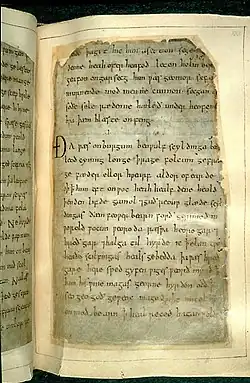 þa gyt hie him asetton segen
denne heah ofer heafod leton holm ber
geafon on garsecg him wæs geomor sefa
murnende mod men ne cunnon secgan
soðe sele rædenne hæleð under heofenum
hwa þæm hlæste onfeng
ÐA wæs on burgum beowulf scyldinga
leod cyning longe þrage folcum gefræ
ge fæder ellor hwearf aldor of earde
oþ þ him eft onwoc heah healfdene heold
þenden lifde gamol ⁊ guð reouw glæde scyl
dingas ðæm feower bearn forð gerimed in
worold wocun weoroda ræswa heorogar ⁊
hroðgar ⁊ halga til hyrde ic þ elan cwen
heaðo scilfingas heals gebedda þa wæs hroð
gare here sped gyfen wiges weorð mynd þ
him his wine magas georne hyrdon oðð þ
seo geogoð geweox mago driht micel him
on mod bearn þ heal reced hatan wolde